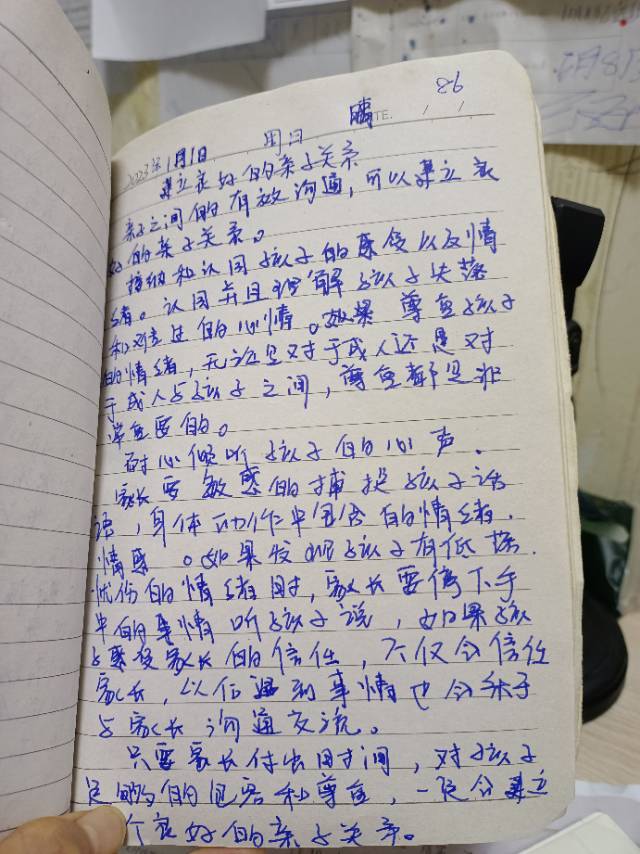 86
2023年1月1 周日 晴
DATE. / /
建立良好的亲子关系
亲子之间的有效沟通,可以建立良
好的亲子关系。
接纳和认同孩子的感受以及情
绪。认同并且理解孩子失落
和难过的心情。如果尊重孩子
的情绪,无论是对于成人还是对
于成人与孩子之间,尊重都是非
常重要的。
耐心倾听孩子的心声。
家长要敏感的捕捉孩子话
语,身体动作中包含的情绪.
情感。如果发现孩子有低落.
忧伤的情绪时,家长要停下手
中的事情听孩子说,如果孩
子感受家长的信任,不仅会信任
家长,以后遇到事情也会乐于
与家长沟通交流。
只要家长付出时间,对孩子
足够的包容和尊重,一定会建立
个良好的亲子关系。